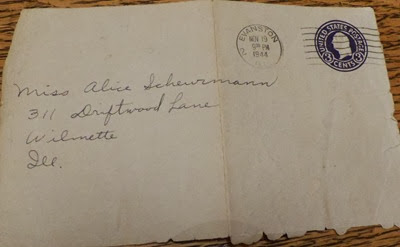 EVANSTON
NOV 19
5 PM
1944
UNITED STATES POSTAGE
3 CENTS 3
Miss Alice Scheurmann
311 Driftwood Lane
Wilmette
Ill.